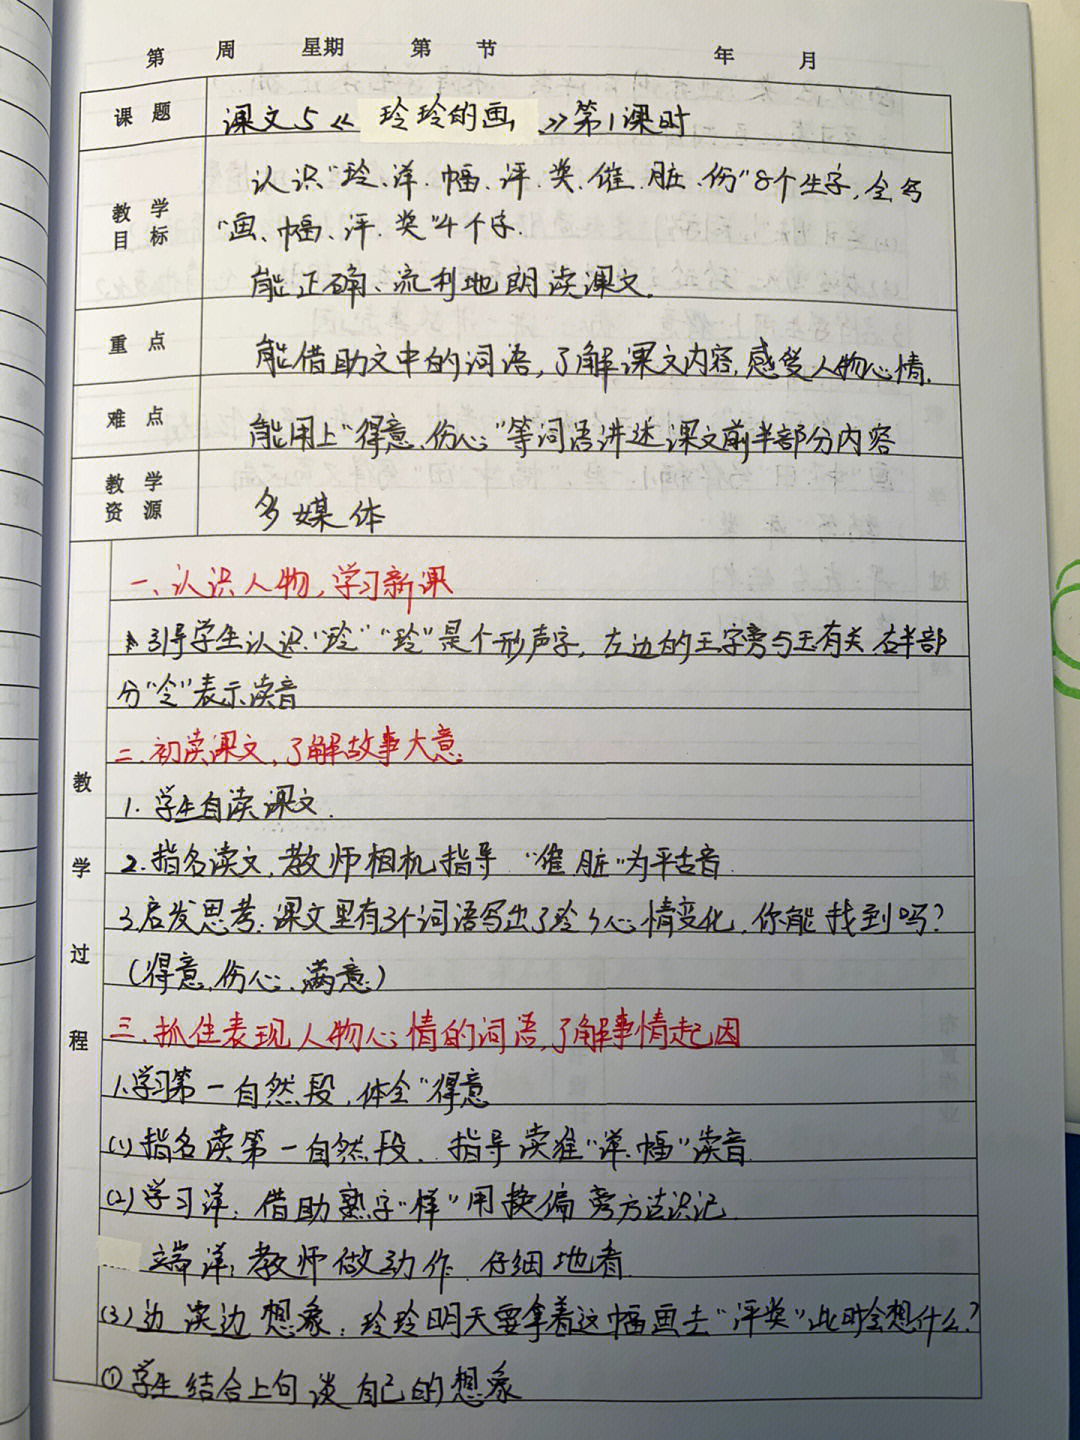 第 周 星期 第 节 年 月
课 题 课文5《 玲玲的画 》第1课时
教 学 目 标 认识"玲、详、幅、评、奖、催、脏、伤"8个生字,会写
"画、幅、评、奖"4个字.
能正确、流利地朗读课文.
重 点 能借助文中的词语,了解课文内容,感受人物心情.
难 点 能用上"得意、伤心"等词语讲述课文前半部分内容
教 学 资 源 多媒体
教 学 过 程
一、认识人物,学习新课
引导学生认识"玲""玲"是个形声字,左边的王字旁与玉有关,右半部
分"令"表示读音
二、初读课文,了解故事大意
1. 学生自读课文.
2.指名读文,教师相机指导 "催 脏"为平舌音.
3.启发思考:课文里有3个词语写出了玲玲心情变化,你能找到吗?
(得意,伤心、满意)
三.抓住表现人物心情的词语,了解事情起因
1.学习第一自然段,体会"得意
(1)指名读第一自然段. 指导读准"详、幅"读音.
(2)学习详:借助熟字"样"用换偏旁方法识记.
端详:教师做动作 仔细地看.
(3)边读边想象:玲玲明天要拿着这幅画去"评奖"此时会想什么?
①学生结合上句谈自己的想象